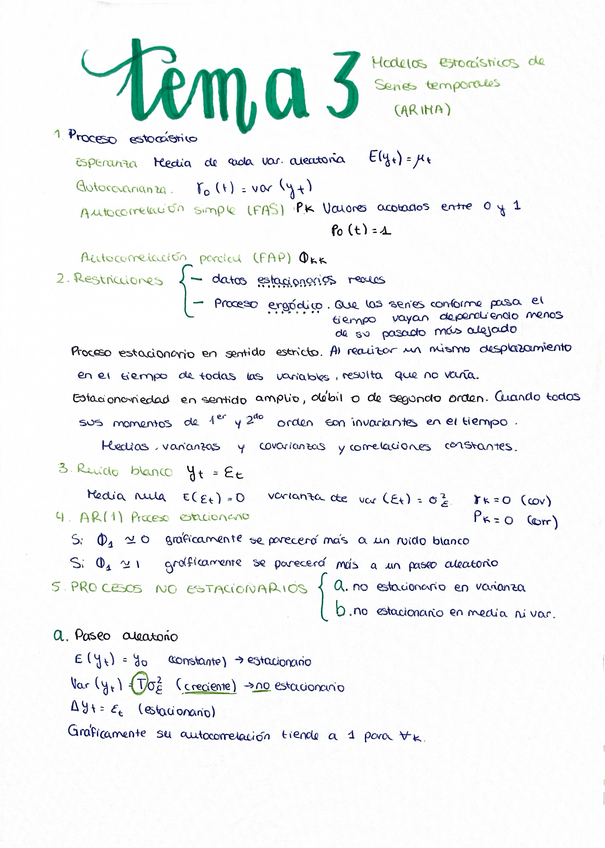 tema 3
Modelos estocásticos de
Series temporales
(ARIMA)
1. Proceso estocástico
Esperanza Media de cada var. aleatoria E(yt) = μt
Autocovarianza. γ0 (t) = var (yt)
Autocorrelación simple (FAS) ρK Valores acotados entre 0 y 1
ρ0 (t) = 1
Autocorrelación parcial (FAP) ΦKK
2. Restricciones
— datos estacionarios reales
— Proceso ergódico. Que las series conforme pasa el
tiempo vayan dependiendo menos
de su pasado más alejado
Proceso estacionario en sentido estricto. Al realizar un mismo desplazamiento
en el tiempo de todas las variables, resulta que no varía.
Estacionariedad en sentido amplio, débil o de segundo orden. Cuando todos
sus momentos de 1er y 2do orden son invariantes en el tiempo.
Medias, varianzas y covarianzas y correlaciones constantes.
3. Ruido blanco yt = Et
Media nula E(Et) = 0 varianza cte var (Et) = σ²ε γK = 0 (cov)
ρK = 0 (corr)
4. AR(1) Proceso estacionario
Si Φ1 ≃ 0 gráficamente se parecerá más a un ruido blanco
Si Φ1 ≃ 1 gráficamente se parecerá más a un paseo aleatorio
5. PROCESOS NO ESTACIONARIOS
a. no estacionario en varianza
b. no estacionario en media ni var.
a. Paseo aleatorio
E(yt) = y0 (constante) → estacionario
Var (yt) = Tσ²ε (creciente) → no estacionario
Δyt = εt (estacionario)
Gráficamente su autocorrelación tiende a 1 para ∀K.